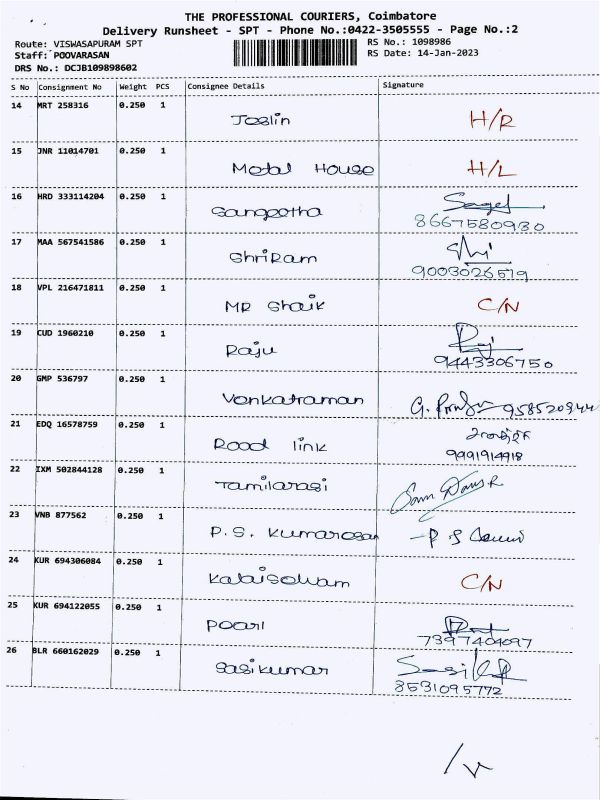 THE PROFESSIONAL COURIERS, Coimbatore
Delivery Runsheet - SPT - Phone No.:0422-3505555 - Page No.:2
Route: VISWASAPURAM SPT RS No.: 1098986
Staff: POOVARASAN RS Date: 14-Jan-2023
DRS No.: DCJB109898602
S No Consignment No Weight PCS Consignee Details Signature
14 MRT 258316 0.250 1 Joslin H/R
15 JNR 11014701 0.250 1 Motal House H/L
16 HRD 333114204 0.250 1 Sangeetha
8667580930
17 MAA 567541586 0.250 1 ShriRam
9003026519
18 VPL 216471811 0.250 1 MR Shaik C/N
19 CUD 1960210 0.250 1 Raju
9443306750
20 GMP 536797 0.250 1 Venkatraman
21 EDQ 16578759 0.250 1 Road link
9991914918
22 IXM 502844128 0.250 1 Tamilarasi
23 VNB 877562 0.250 1 P.S. Kumarosan
24 KUR 694306084 0.250 1 Kalaiselvam C/N
25 KUR 694122055 0.250 1 Poari
7397404097
26 BLR 660162029 0.250 1 Sasikumar
8531095772